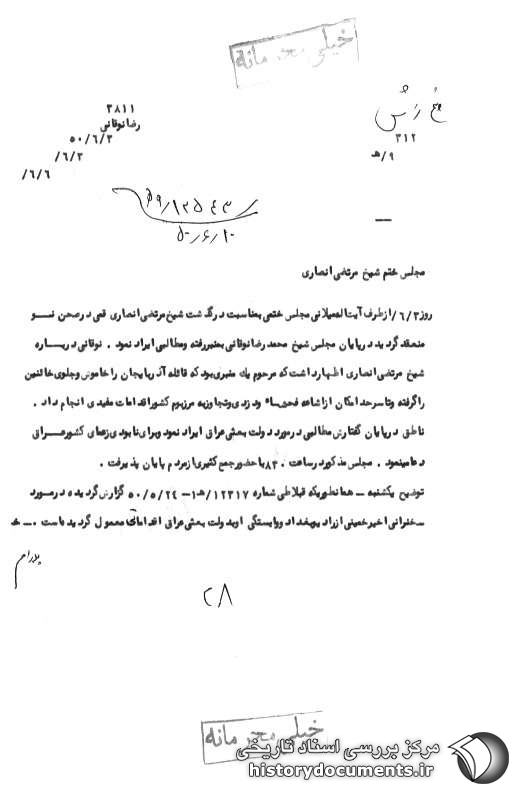 خیلی محرمانه
۳۸۱۱
رضا نوقانی
۵۰/۶/۳
/۶/۳
/۶/۶
۳۱۲
۹/هـ
۵۰/۶/۱۰
مجلس ختم شیخ مرتضی انصاری
روز ۶/۳/ از طرف آیت‌الله میلانی مجلس ختمی بمناسبت درگذشت شیخ مرتضی انصاری قمی در صحن نـو
منعقد گردید در پایان مجلس شیخ محمد رضا نوقانی بمنبر رفته و مطالبی ایراد نمود . نوقانی دربـاره
شیخ مرتضی انصاری اظهار داشت که مرحوم یك منبری بود که قائله آذربایجان را خاموش و جلوی خائنین
را گرفته و تا سرحد امکان از اشاعه فحشاء و دزدی و تجاوز به مرزبوم کشور اقدامات مفیدی انجام داد .
ناطق در پایان گفتارش مطالبی در مورد دولت بعثی عراق ایراد نمود و برای نابودی زعمای کشور عـراق
دعا مینمود . مجلس مذکور در ساعت با حضور جمع کثیری از مردم پایان پذیرفت .
توضیح یکشنبه ـ همانطوریکه قبلا طی شماره ۱۲۳۱۷/هـ۱ـ ۵۰/۵/۲۴ گزارش گردیده در مورد
ـ سخنرانی اخیر خمینی از رادیو بغداد و وابستگی او بدولت بعثی عراق اقداماتی معمول گردیده است .ـ خـ
بهرام
۲۸
خیلی محرمانه
مرکز بررسی اسناد تاریخی
historydocuments.ir